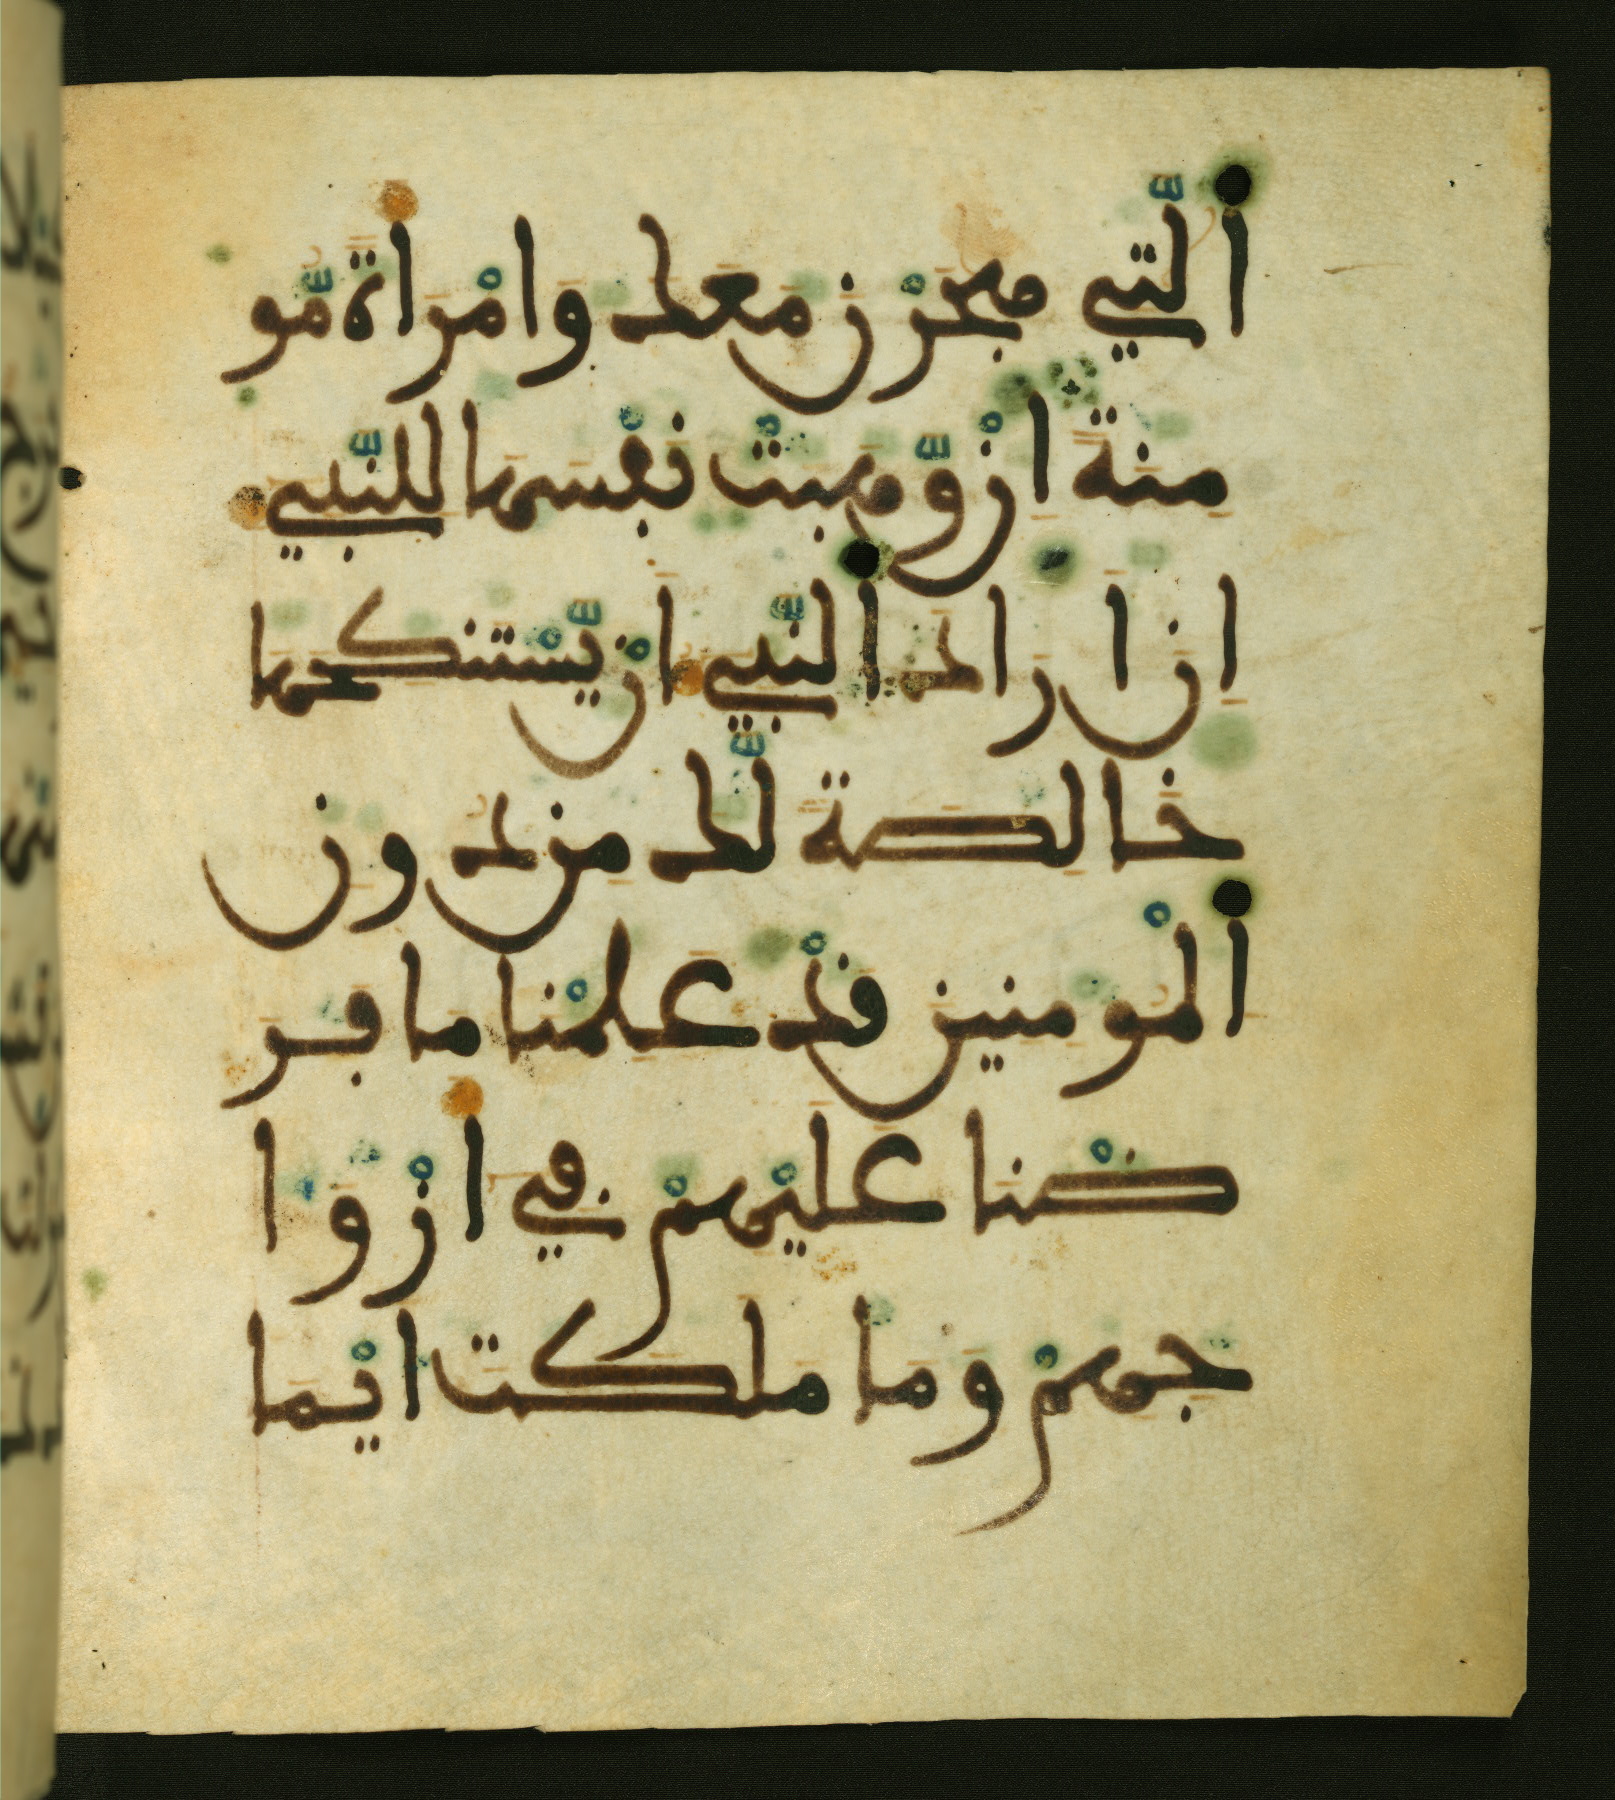 التي هجرن معك وامراة مو
منة ان وهبت نفسها للنبي
ان اراد النبي ان يستنكحها
خالصة لك من دون
المومنين قد علمنا ما فر
ضنا عليهم في ازوا
جهم وما ملكت ايما